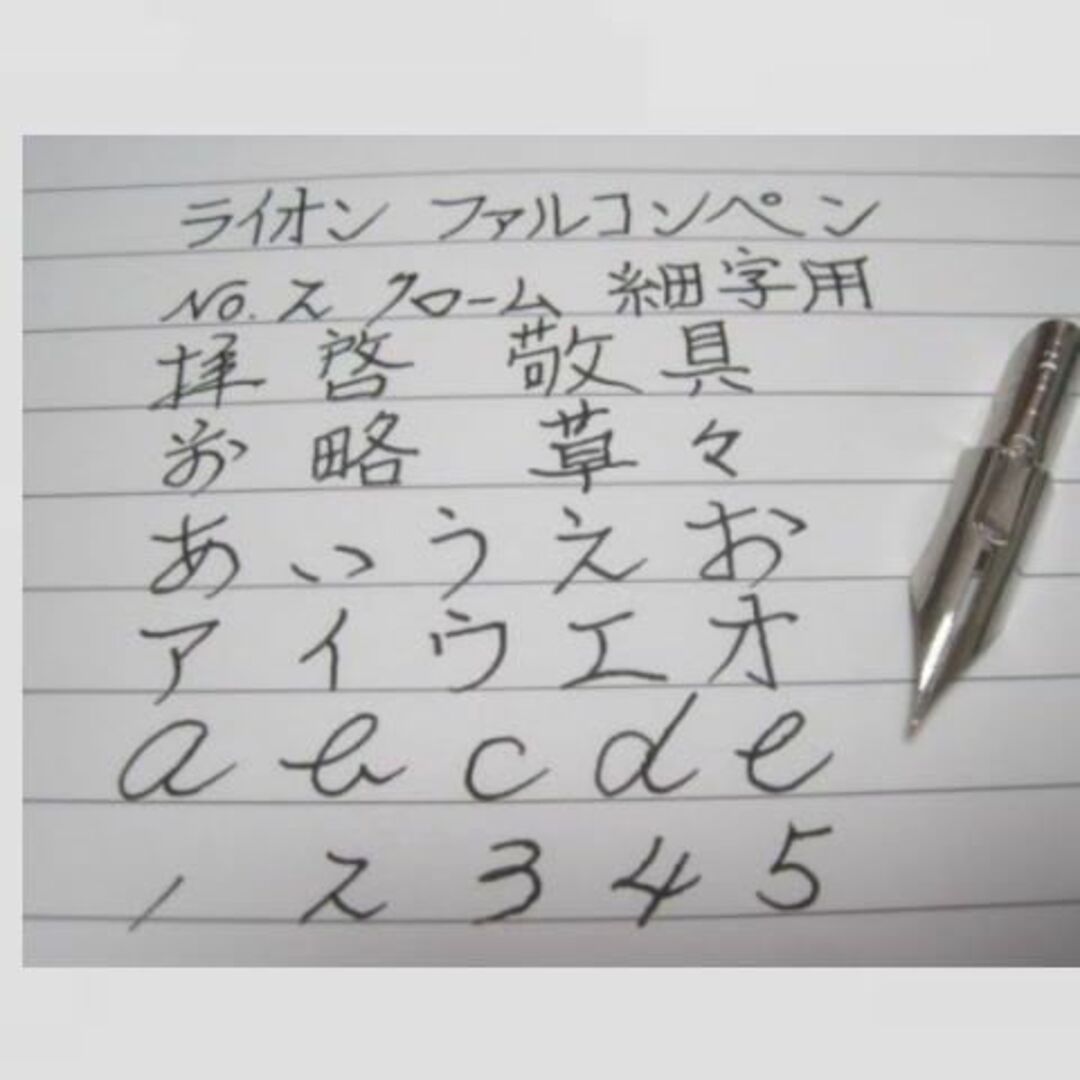 ライオン ファルコンペン
No.2 クローム 細字用
拝 啓 敬 具
前 略 草 々
あ い う え お
ア イ ウ エ オ
a b c d e
1 2 3 4 5